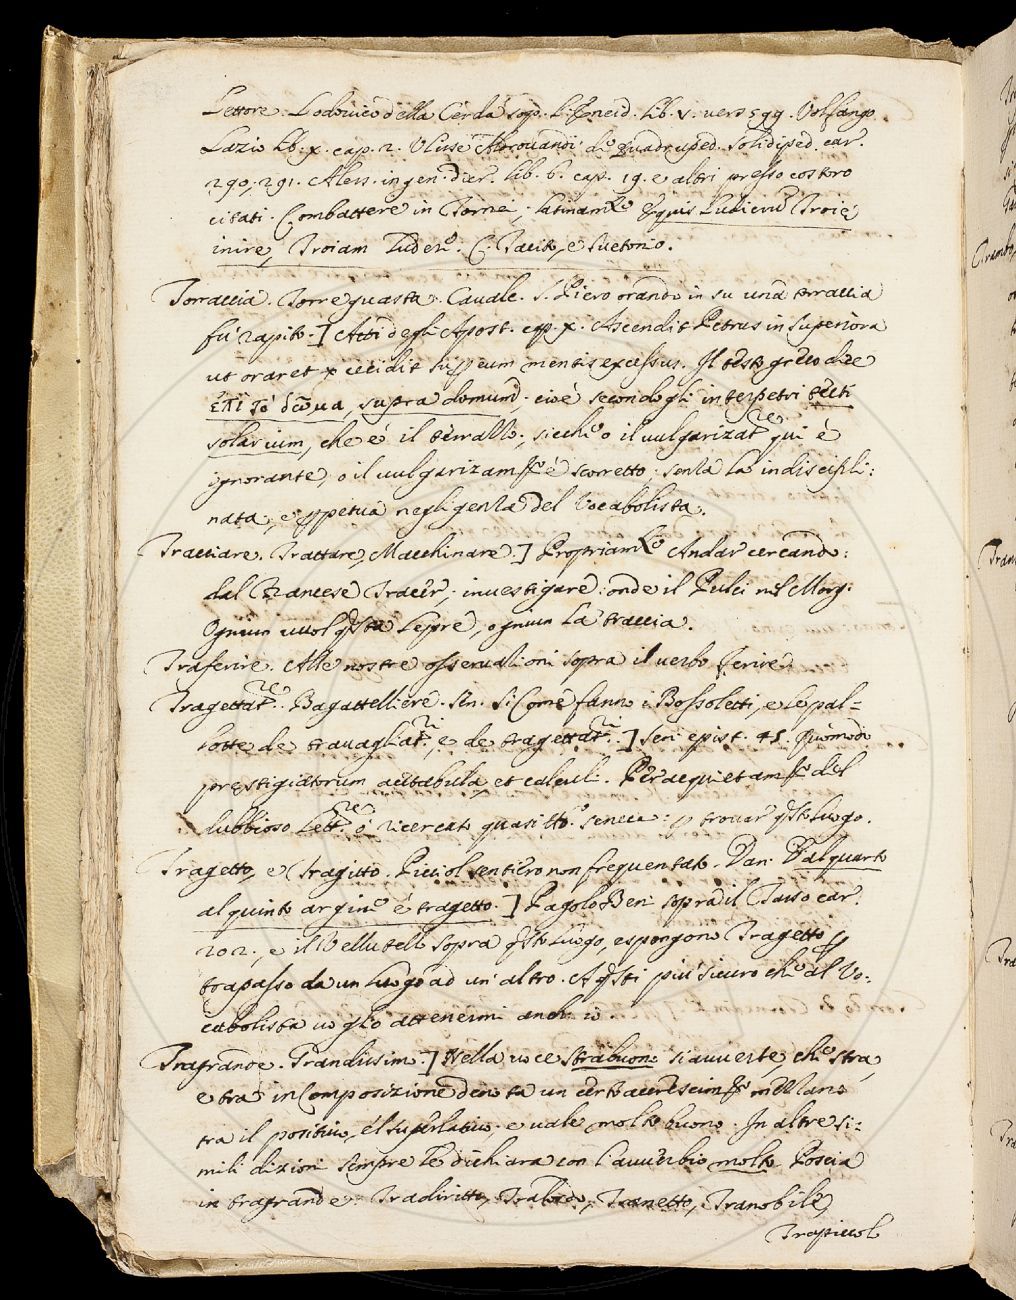 Lettore. Lodovico della Cerda sop. l'Eneid. lib. v. vers 599. Volfango
Lazio lib. x. cap. 2. Ulisse Aldrovandi de Quadruped. solidiped. car.
290, 291. Aless. in gen. dier. lib. 6. cap. 19. e altri presso costoro
citati. Combattere in Tornei, latinamte Equis Ludicrū Troię
inire, Troiam Luderē. C. Tacito, e Suetonio.
Torraccia. Torre guasta. Cavalc. S. Piero orando in su una torraccia
fu rapito.] Atti degli Apost. cap. x. Ascendit Petrus in superiora
ut oraret & cecidit super eum mentis excessus. Il testo greco dice
ἐπὶ τὸ δῶμα, supra domum, cioè secondo gli interpetri tecti
solarium, che è il terrallo; sicchè o il vulgarizatre qui è
ignorante, o il vulgarizamto è scorretto. senza la indiscipli:
nata, e ppetua negligenza del Vocabolista.
Tracciare. Trattare, Macchinare.] Propriamte Andar cercando:
dal Francese Tracer, investigare: onde il Pulci nel Morg:
Ognun vuol qsta Lepre, ognun la traccia.
Traferire. Alle nostre osservazioni sopra il verbo Ferire.
Tragettatre. Bagattelliere. Sen. Si come fanno i Bossoletti, e le pal=
lotte de travagliatri, e de tragettatri.] Sen. epist. 45. Quomodo
pręstigiatorum acetabula, et calculi. Per acquietamto del
dubbioso Lettre ò ricercato quasi tto Seneca: p trovar qsto Luogo.
Tragetto, e Tragitto. Picciol sentiero non frequentato. Dan. Dal quarto
al quinto argine è tragetto.] Pagolo Beni sopra il Tasso car.
202. e il Vellutello sopra qsto Luogo, espongono Tragetto p
trapasso da un Luogo ad un' altro. A qsti più sicuro che al Vo:
cabolista voglio attenermi anch' io.
Tragrande. Grandissim.] Nella voce strabuono si avverte, che stra,
e tra in Composizione denota un certo accrescimto mezzano
tra il positivo, e 'l superlativo, e vale molto buono. In altre si:
mili dizioni sempre le dichiara con l'avverbio molto. Poscia
in tragrande. Tradiritto, Tralordo, Tranetto, Tranobile,
Trapiccol